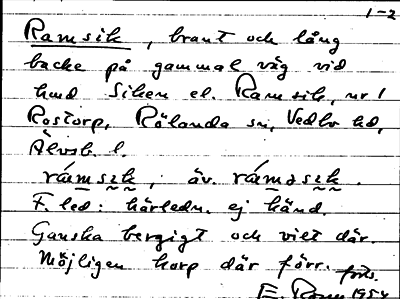 1-2
Ramsik, brant och lång
backe på gammal väg vid
hmd Siken el. Ramsik, nr 1
Rostorp, Rölanda sn, Vedbo hd,
Älvsb. l.
ramsik, äv. ramsik.
F. led: härledn. ej känd.
Ganska bergigt och vilt där.
Möjligen korp där förr. forts.
E. 1954